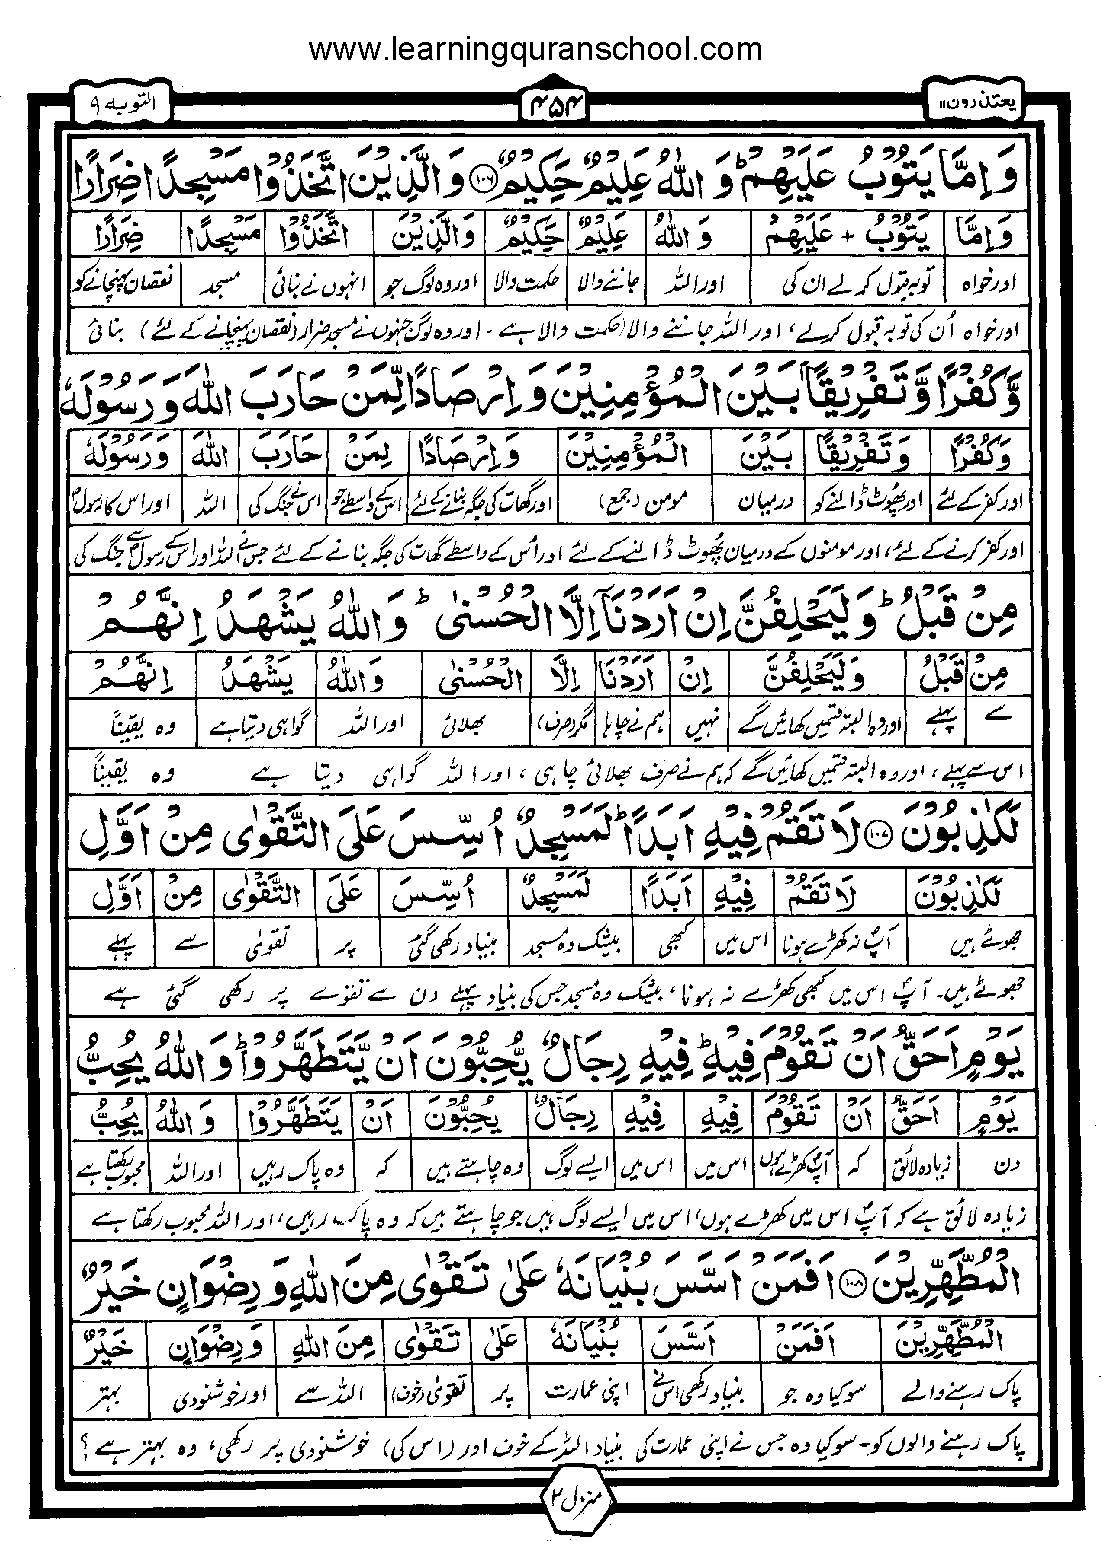 www.learningquranschool.com
یعتذرون ۱۱ ۴۵۴ التوبہ ۹
وَاِمَّا یَتُوْبُ عَلَیْهِمْ ؕ وَ اللّٰهُ عَلِیْمٌ حَكِیْمٌ ۝۱۰۶ وَالَّذِیْنَ اتَّخَذُوْا مَسْجِدًا ضِرَارًا
وَاِمَّا یَتُوْبُ + عَلَیْهِمْ وَ اللّٰهُ عَلِیْمٌ حَكِیْمٌ وَالَّذِیْنَ اتَّخَذُوْا مَسْجِدًا ضِرَارًا
اور خواہ توبہ قبول کر لے ان کی اور اللہ جاننے والا حکمت والا اور وہ لوگ جو انہوں نے بنائی مسجد نقصان پہنچانے کو
اور خواہ اُن کی توبہ قبول کرلے، اور اللہ جاننے والا حکمت والا ہے۔ اور وہ لوگ جنہوں نے مسجد ضرار (نقصان پہنچانے کے لئے) بنائی
وَّكُفْرًا وَّتَفْرِیْقًۢا بَیْنَ الْمُؤْمِنِیْنَ وَ اِرْصَادًا لِّمَنْ حَارَبَ اللّٰهَ وَ رَسُوْلَهٗ
وَكُفْرًا وَتَفْرِیْقًا بَیْنَ الْمُؤْمِنِیْنَ وَ اِرْصَادًا لِمَنْ حَارَبَ اللّٰهَ وَ رَسُوْلَهٗ
اور کفر کے لئے اور پھوٹ ڈالنے کو درمیان مومن (جمع) اور گھات کی جگہ بنانے کیلئے اس کے واسطے جو اس نے جنگ کی اللہ اور اس کا رسول
اور کفر کرنے کے لئے، اور مومنوں کے درمیان پُھوٹ ڈالنے کے لئے اور اُس کے واسطے گھات کی جگہ بنانے کے لئے جس نے اللہ اور اس کے رسول سے جنگ کی
مِنْ قَبْلُ ؕ وَ لَیَحْلِفُنَّ اِنْ اَرَدْنَاۤ اِلَّا الْحُسْنٰی ؕ وَ اللّٰهُ یَشْهَدُ اِنَّهُمْ
مِنْ قَبْلُ وَ لَیَحْلِفُنَّ اِنْ اَرَدْنَا اِلَّا الْحُسْنٰی وَ اللّٰهُ یَشْهَدُ اِنَّهُمْ
سے پہلے اور وہ البتہ قسمیں کھائیں گے نہیں ہم نے چاہا مگر (صرف) بھلائی اور اللہ گواہی دیتا ہے وہ یقیناً
اس سے پہلے، اور وہ البتہ قسمیں کھائیں گے کہ ہم نے صرف بھلائی چاہی، اور اللہ گواہی دیتا ہے وہ یقیناً
لَكٰذِبُوْنَ ۝۱۰۷ لَا تَقُمْ فِیْهِ اَبَدًا ؕ لَمَسْجِدٌ اُسِّسَ عَلَی التَّقْوٰی مِنْ اَوَّلِ
لَكٰذِبُوْنَ لَا تَقُمْ فِیْهِ اَبَدًا لَمَسْجِدٌ اُسِّسَ عَلَی التَّقْوٰی مِنْ اَوَّلِ
جھوٹے ہیں آپ نہ کھڑے ہونا اس میں کبھی بیشک وہ مسجد بنیاد رکھی گئی پر تقویٰ سے پہلے
جھوٹے ہیں۔ آپ اس میں کبھی کھڑے نہ ہونا، بیشک وہ مسجد جس کی بنیاد پہلے دن سے تقوے پر رکھی گئی ہے
یَوْمٍ اَحَقُّ اَنْ تَقُوْمَ فِیْهِ ؕ فِیْهِ رِجَالٌ یُّحِبُّوْنَ اَنْ یَّتَطَهَّرُوْا ؕ وَ اللّٰهُ یُحِبُّ
یَوْمٍ اَحَقُّ اَنْ تَقُوْمَ فِیْهِ فِیْهِ رِجَالٌ یُحِبُّوْنَ اَنْ یَتَطَهَّرُوْا وَ اللّٰهُ یُحِبُّ
دن زیادہ لائق کہ آپ کھڑے ہوں اس میں اس میں ایسے لوگ وہ چاہتے ہیں کہ وہ پاک رہیں اور اللہ محبوب رکھتا ہے
زیادہ لائق ہے کہ آپ اس میں کھڑے ہوں، اس میں ایسے لوگ ہیں جو چاہتے ہیں کہ وہ پاک رہیں، اور اللہ محبوب رکھتا ہے
الْمُطَّهِّرِیْنَ ۝۱۰۸ اَفَمَنْ اَسَّسَ بُنْیَانَهٗ عَلٰی تَقْوٰی مِنَ اللّٰهِ وَ رِضْوَانٍ خَیْرٌ
الْمُطَّهِّرِیْنَ اَفَمَنْ اَسَّسَ بُنْیَانَهٗ عَلٰی تَقْوٰی مِنَ اللّٰهِ وَ رِضْوَانٍ خَیْرٌ
پاک رہنے والے سو کیا وہ جو بنیاد رکھی اس نے اپنی عمارت پر تقویٰ (خوف) اللہ سے اور خوشنودی بہتر
پاک رہنے والوں کو۔ سو کیا وہ جس نے اپنی عمارت کی بنیاد اللہ کے خوف اور (اس کی) خوشنودی پر رکھی، وہ بہتر ہے؟
منزل ۲